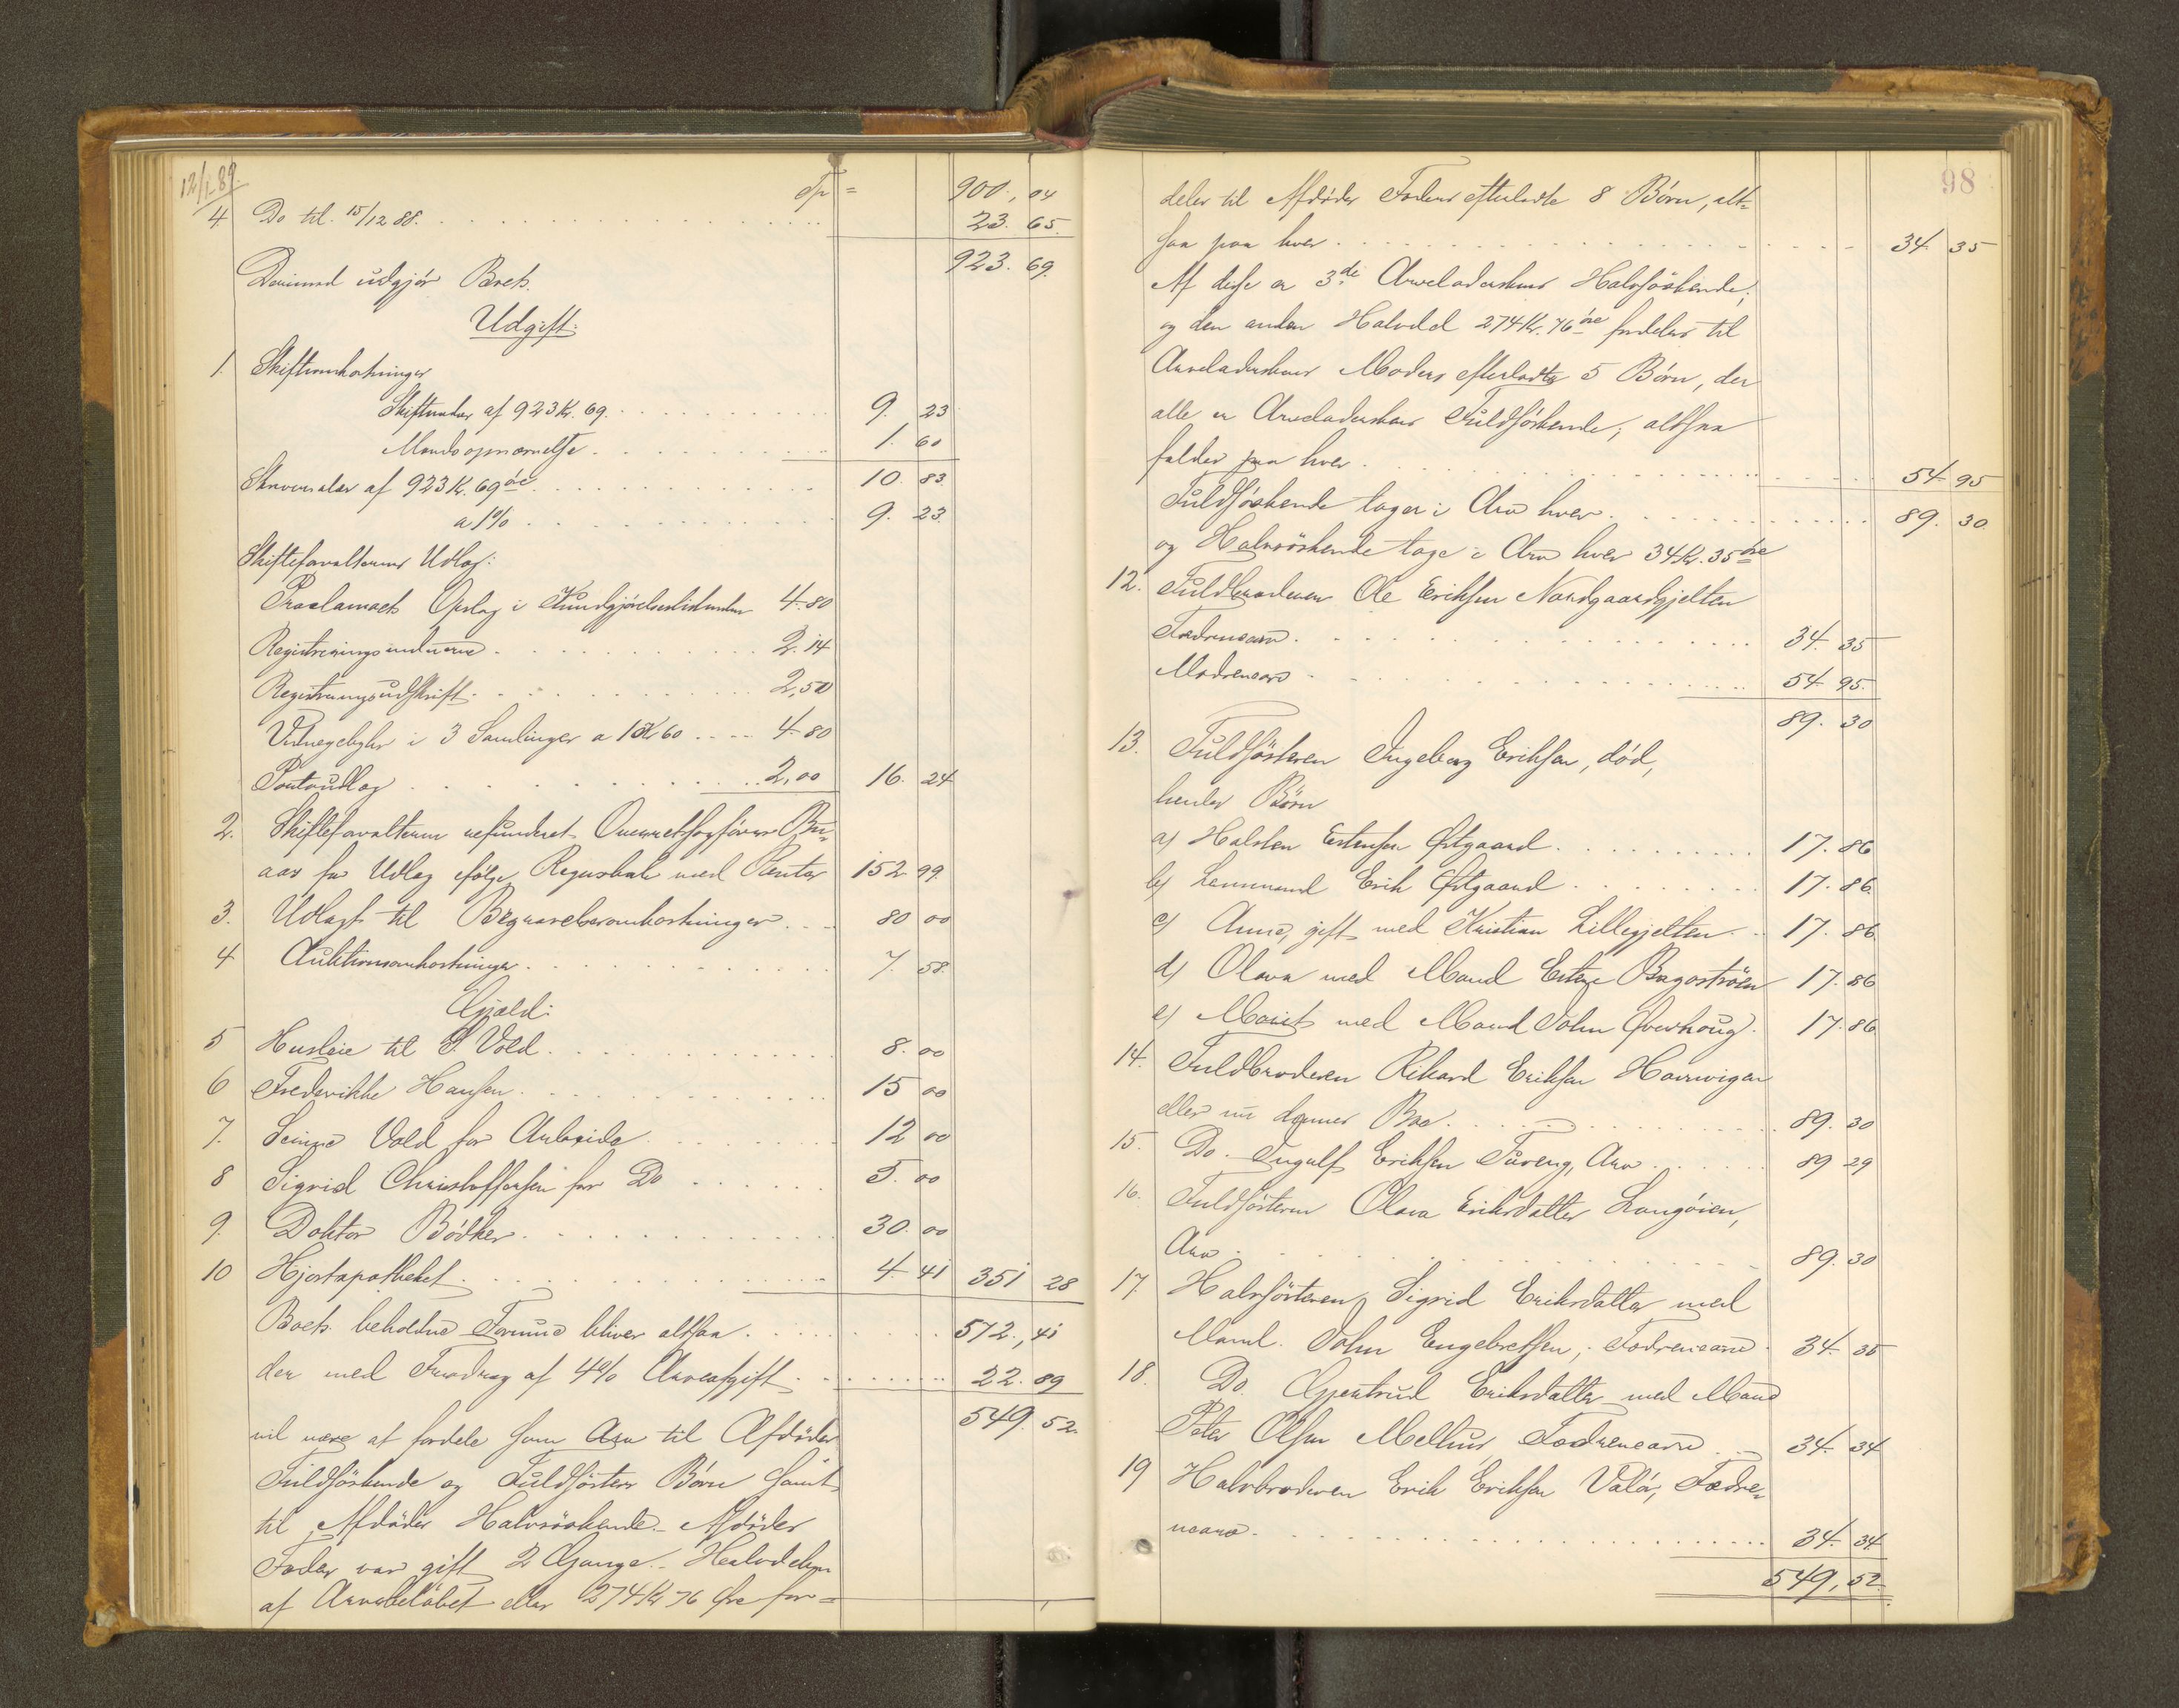 12/1-89.
Tp = 900,,04
4. Do til 15/12 88. . . . 23. 65.
923. 69.
Derimod udgjør Boets
Udgift:
1. Skifteomkostninger
Skifteralar af 923 Kr. 69. . . . 9. 23
Mandsopnævnelse . . . 1. 60
Skriversalær af 923 Kr. 69 øre . . . 10. 83.
a 1% . . . 9. 23.
Skifteforvalterens Udlæg:
Proclamaets Opslag i Kundgjørelsestidenden 4-80
Registreringsmændene . . . 2. 14
Registreringsudskrift . . . 2,50
Vidnegebyhr i 3 Samlinger a 1 Kr 60 . . . 4-80
Portoudlæg . . . 2,00 16. 24
2. Skifteforvalteren refunderet Overretssagfører Bu-
aas for Udlæg ifølge Regnskab med Renter 152. 99.
3. Udlagt til Begravelsesomkostninger . . . 80 00
4 Auktionsomkostninger . . . 7. 58.
Gjæld:
5 Husleie til S. Vold . . . 8. 00
6 Frederikke Hansen . . . 15 00
7. Vold for Arbeide . . . 12 00
8 Sigrid Christoffersen for Do . . . 5. 00
9. Doktor Bödker . . . 30. 00
10 Hjortapotheket . . . 4. 41 351 28
Boets beholdne Formue bliver altsaa . . . 572,,41
der med Fradrag af 4% Arveafgift . . . 22. 89
549. 52.
vil være at fordele som Arv til Afdødes
Fuldsöskende og Fuldsösters Børn samt
til Afdødes Halvsöskende. Afdødes
Fader var gift 2 Gange. - Halvdelen
af Arvebeløbet eller 274 Kr 76 Øre for-
98
deles til Afdødes Faders efterladte 8 Börn, alt-
saa paa hver . . . 34. 35
Af disse er 3de Arveladerskens Halvsöskende;
og den anden Halvdel 274 Kr. 76 øre fordeles til
Arveladerskens Moders efterladte 5 Börn, der
alle er Arveladerskens Fuldsöskende; altsaa
falder paa hver . . . 54 95
Fuldsöskende tager i Arv hver . . . 89. 30.
og Halvsöskende tage i Arv hver 34 Kr. 35 øre
12. Fuldbroderen Ole Eriksen Nordgaardgjelten
Fædrenearv . . . 34. 35
Mødrenearv . . . 54. 95.
89. 30
13. Fuldsösteren Ingeborg Eriksen, død,
hendes Børn
a) Halsten Estensen Østgaard . . . 17. 86
b) Lensmand Erik Østgaard . . . 17. 86.
c) Anne, gift med Kristian Lillegjelten . . 17. 86
d) Olava med Mand Esten Bagoströen 17. 86
e) Marit med Mand John Øverhoug . 17. 86
14. Fuldbroderen Rikard Eriksen
eller nu dennes Bo . . . 89. 30
15. Do. Ingulf Eriksen Tüveng, Arv . . . 89 29
16. Fuldsösteren Olava Eriksdatter Langöien,
Arv . . . 89. 30
17. Halvsösteren Sigrid Eriksdatter med
Mand John Engebretsen, Fædrenearv . 34. 35
18. Do. Gjertrud Eriksdatter med Mand
Peter Olsen Melhus Fædrenearv . . 34. 34
19 Halvbroderen Erik Eriksen Valøi, Fædre-
nearv . . . 34. 34
549,52.